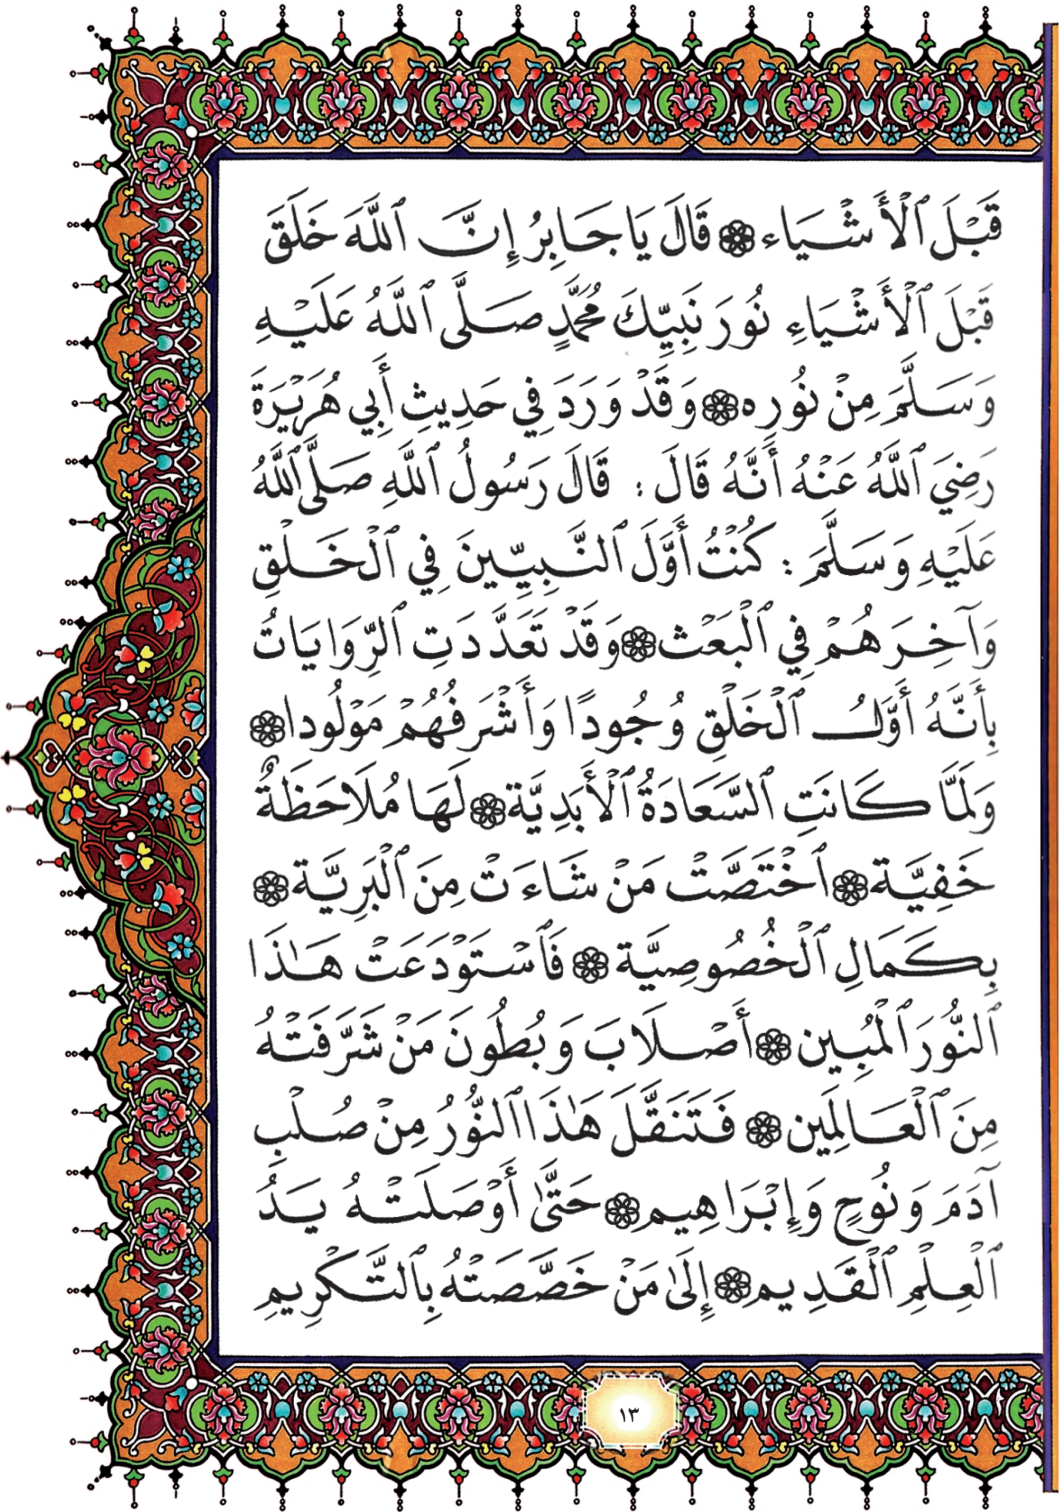 قَبْلَ ٱلْأَشْيَاء ۞ قَالَ يَا جَابِرُ إِنَّ ٱللَّهَ خَلَقَ
قَبْلَ ٱلْأَشْيَاءِ نُورَ نَبِيِّكَ مُحَمَّدٍ صَلَّى ٱللَّهُ عَلَيْهِ
وَسَلَّمَ مِنْ نُورِه ۞ وَقَدْ وَرَدَ فِي حَدِيثِ أَبِي هُرَيْرَةَ
رَضِيَ ٱللَّهُ عَنْهُ أَنَّهُ قَالَ : قَالَ رَسُولُ ٱللَّهِ صَلَّى ٱللَّهُ
عَلَيْهِ وَسَلَّمَ : كُنْتُ أَوَّلَ ٱلنَّبِيِّينَ فِي ٱلْخَلْقِ
وَآخِرَهُمْ فِي ٱلْبَعْث ۞ وَقَدْ تَعَدَّدَتِ ٱلرِّوَايَاتُ
بِأَنَّهُ أَوَّلُ ٱلْخَلْقِ وُجُودًا وَأَشْرَفُهُمْ مَوْلُودا ۞
وَلَمَّا كَانَتِ ٱلسَّعَادَةُ ٱلْأَبَدِيَّة ۞ لَهَا مُلَاحَظَةٌ
خَفِيَّة ۞ ٱخْتَصَّتْ مَنْ شَاءَتْ مِنَ ٱلْبَرِيَّة ۞
بِكَمَالِ ٱلْخُصُوصِيَّة ۞ فَٱسْتَوْدَعَتْ هَٰذَا
ٱلنُّورَ ٱلْمُبِين ۞ أَصْلَابَ وَبُطُونَ مَنْ شَرَّفَتْهُ
مِنَ ٱلْعَالَمِين ۞ فَتَنَقَّلَ هَٰذَا ٱلنُّورُ مِنْ صُلْبِ
آدَمَ وَنُوحٍ وَإِبْرَاهِيم ۞ حَتَّىٰ أَوْصَلَتْهُ يَدُ
ٱلْعِلْمِ ٱلْقَدِيم ۞ إِلَىٰ مَنْ خَصَّصَتْهُ بِٱلتَّكْرِيمِ
١٣